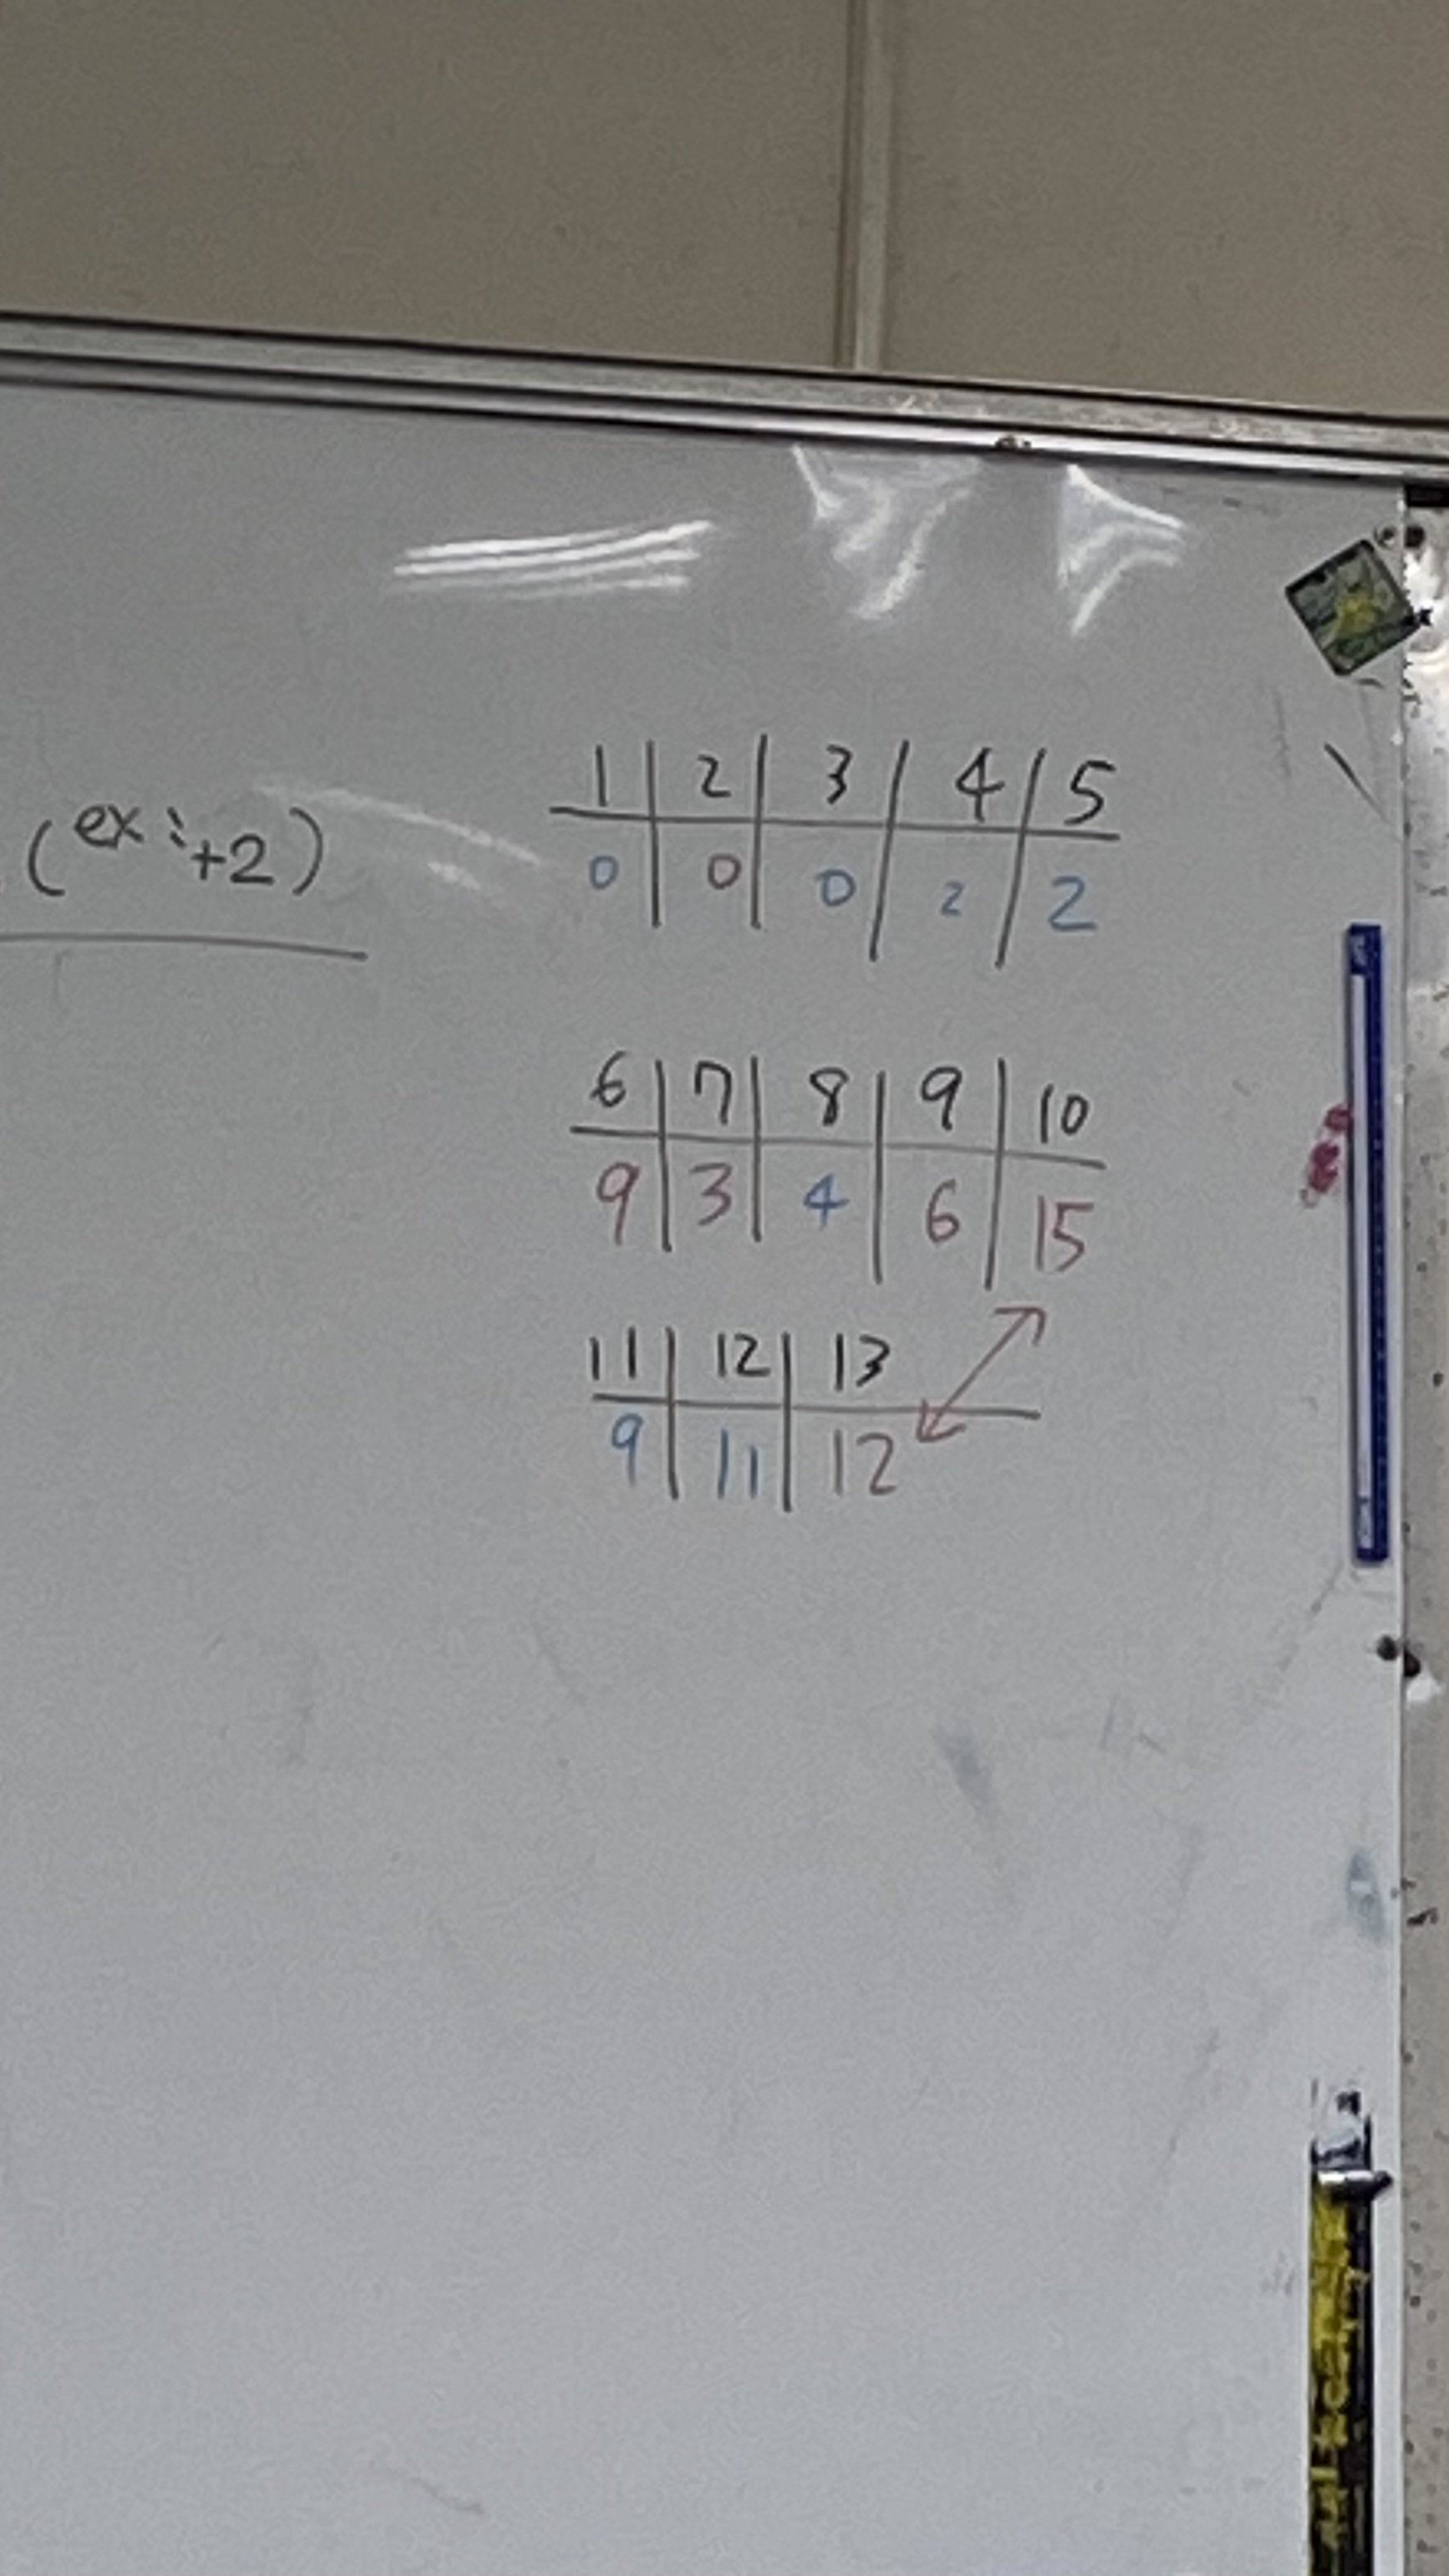 (ex: +2)
1 | 2 | 3 | 4 | 5
0 | 0 | 0 | 2 | 2
6 | 7 | 8 | 9 | 10
9 | 3 | 4 | 6 | 15
11 | 12 | 13
9 | 11 | 12